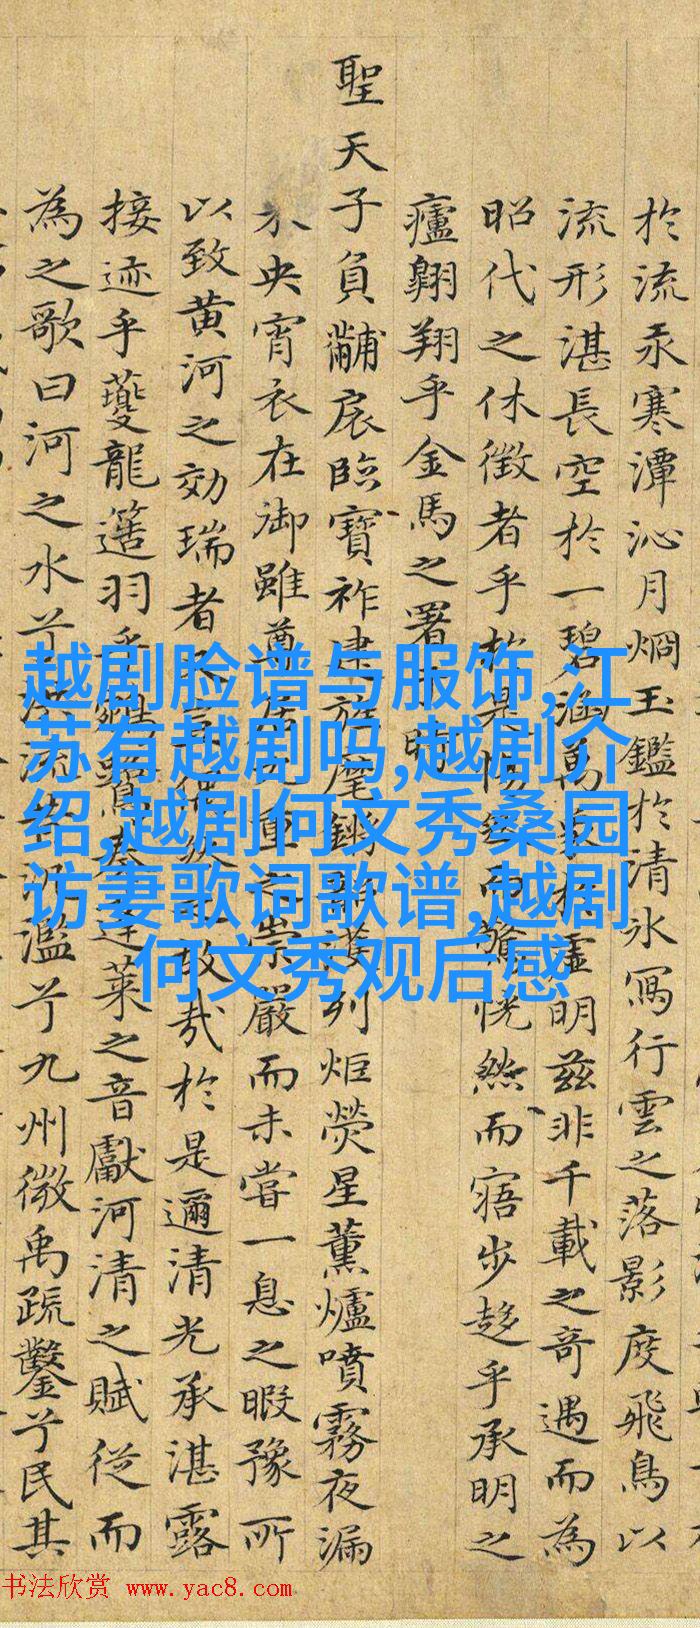 於流汞寒潭沁月烱玉鑑於清氷寫行雲之落影度飛鳥以
流形湛長空於一碧涵萬象於虛明茲非千載之奇遇而為
昭代之休徵者乎於是惕而驚恍然而寤步趍乎承明之
翱翔乎金馬之署于時
聖天子負黼扆臨寶祚建旌麾列炬熒星薰爐噴霧夜漏
未央宵衣在御雖尊居九重之崇嚴而未嘗一息之暇豫所
以致黄河之効瑞者夫豈偶然之故哉於是邇清光承湛露
接迹乎夔龍簉羽乎鵷鷺奏蓬萊之音獻河清之賦從而
為之歌曰河之水兮流昔汎濫兮九州微禹疏鑿兮民其
越剧脸谱与服饰,江
苏有越剧吗,越剧介
绍,越剧何文秀桑园
访妻歌词歌谱,越剧
何文秀观后感
书法欣赏 www.yac8.com